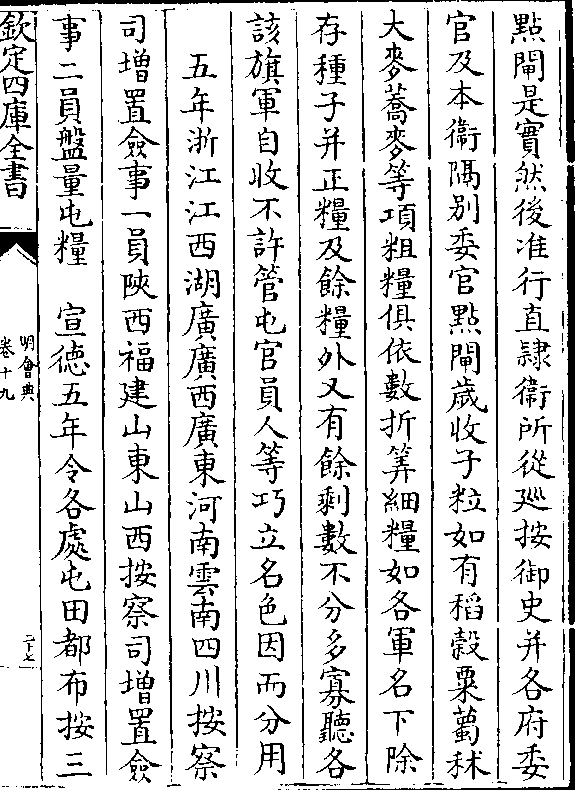 點閘是實然後准行直隷衞所從廵按御史并各府委
官及本衞隔别委官點閘歳收子粒如有稻榖粟薥秫
大麥蕎麥等項粗糧俱依數折筭細糧如各軍名下除
存種子并正糧及餘糧外又有餘剩數不分多寡聽各
該旗軍自收不許管屯官員人等巧立名色因而分用
五年浙江江西湖廣廣西廣東河南雲南四川按察
司增置僉事一員陜西福建山東山西按察司增置僉
事二員盤量屯糧　宣德五年令各處屯田都布按三
欽定四庫全書
明會典
卷十九
二十七